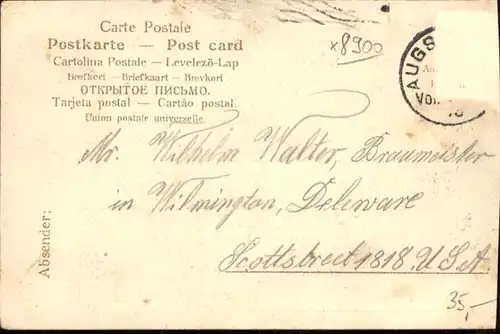 Carte Postale
Postkarte — Post card
Cartolina Postale — Levelező-Lap
Brefkort — Briefkaart — Brevkort
ОТКРЫТОЕ ПИСЬМО.
Tarjeta postal — Cartão postal.
Union postale universelle.
x8900
AUGS
VOR
Mr. Wilhelm Walter, Braumeister
in Wilmington, Deleware
Scottstreet 1818. U.S.A.
Absender:
35,-